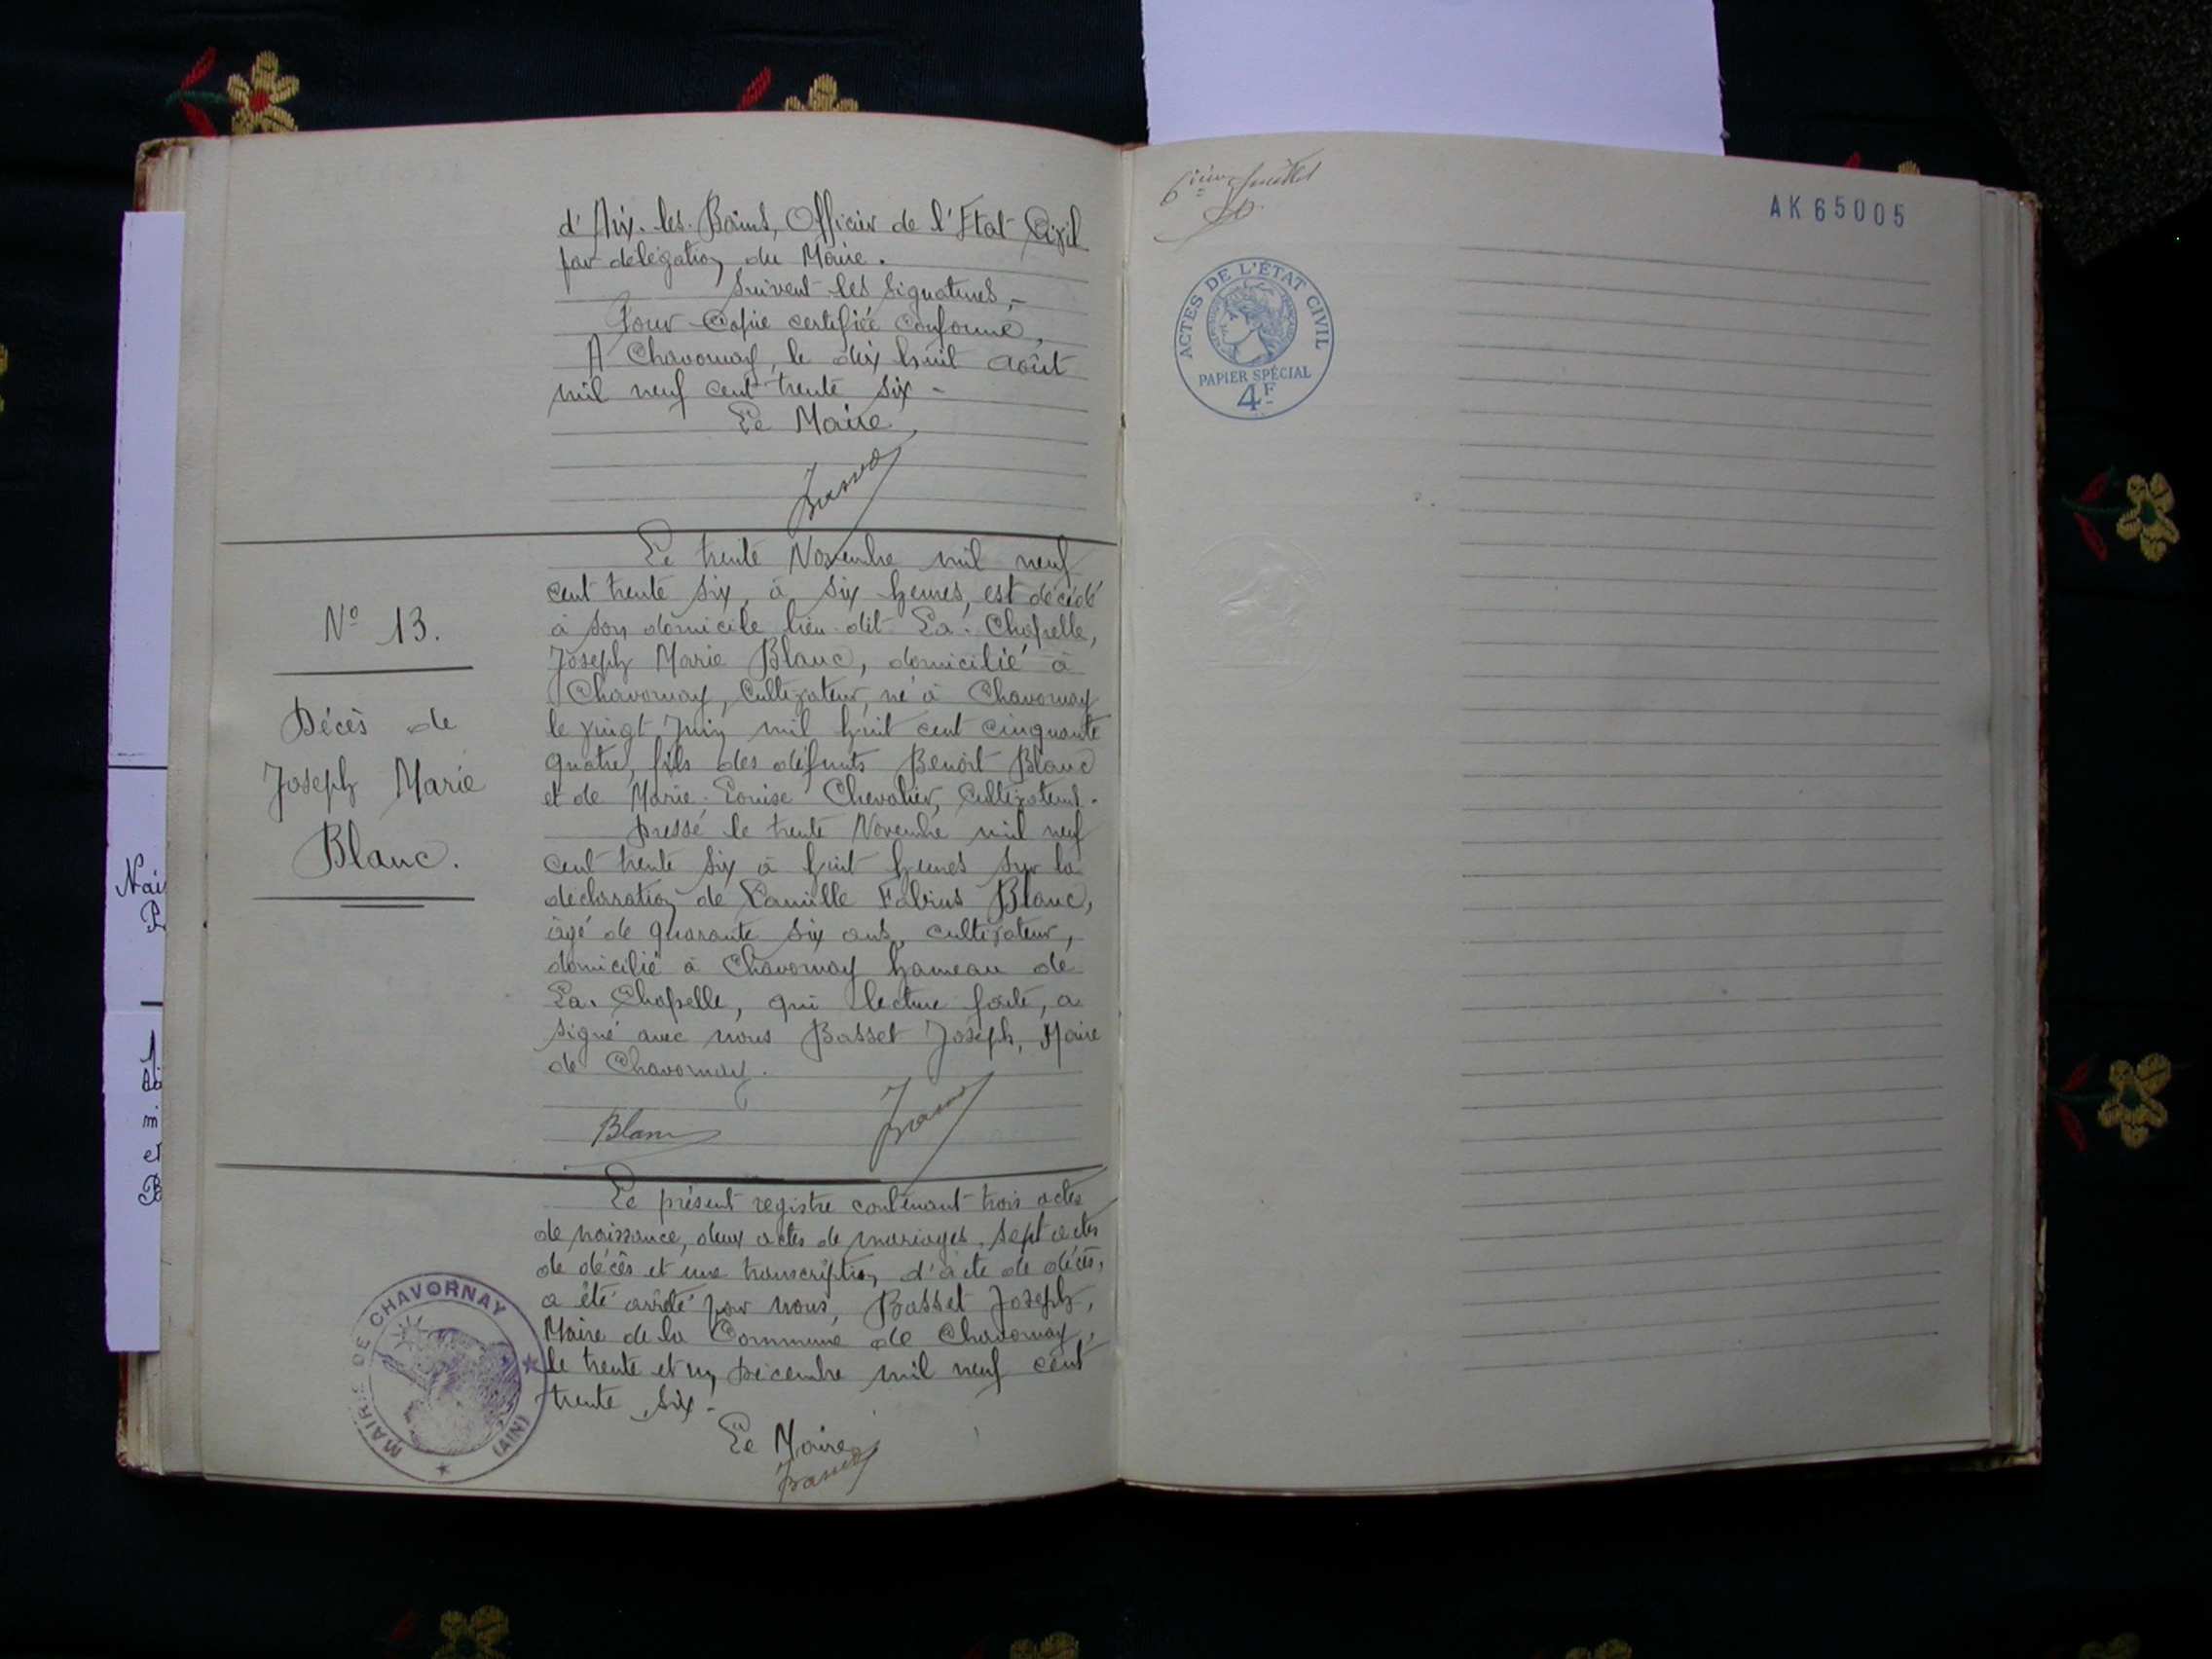 d'Aix-les-Bains, Officier de l'Etat-Civil
par délégation du Maire.
Suivent les signatures,-
Pour Copie certifiée conforme,
A Chavornay, le dix huit Août
mil neuf cent trente six -
Le Maire,
Basset
Le trente Novembre mil neuf
cent trente six, à six heures, est décédé
à son domicile lieu-dit La-Chapelle,
N° 13.
Joseph Marie Blanc, domicilié à
Chavornay, cultivateur, né à Chavornay
Décès de
le vingt Juin mil huit cent cinquante
quatre, fils des défunts Benoit Blanc
Joseph Marie
et de Marie-Louise Chevalier, cultivateurs.
Dressé le trente Novembre mil neuf
Blanc.
cent trente six à huit heures sur la
déclaration de Camille Fabius Blanc,
âgé de quarante six ans, cultivateur,
domicilié à Chavornay hameau de
La-Chapelle, qui lecture faite, a
signé avec nous Basset Joseph, Maire
de Chavornay.
Blanc
Basset
Le présent registre contenant trois actes
de naissance, deux actes de mariages, sept actes
de décès et une transcription d'acte de décès,
a été arrêté par nous, Basset Joseph,
Maire de la Commune de Chavornay,
le trente et un Décembre mil neuf cent
trente six -
Le Maire
Basset
MAIRIE DE CHAVORNAY
(AIN)
Nai
P
1
m
et
B
6ième feuillet
AK65005
ACTES DE L'ÉTAT CIVIL
PAPIER SPÉCIAL
4F